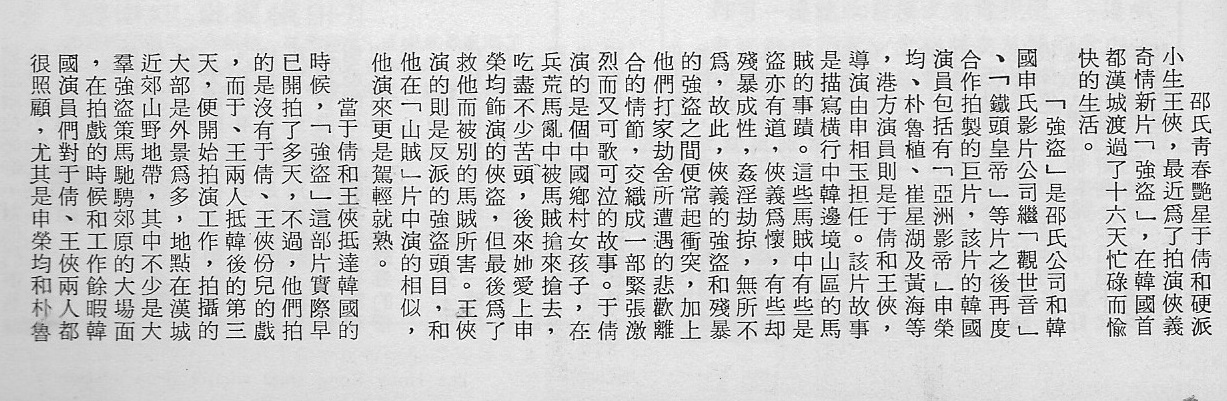 邵氏靑春艷星于倩和硬派
小生王俠，最近爲了拍演俠義
奇情新片「強盜」，在韓國首
都漢城渡過了十六天忙碌而愉
快的生活。
「強盜」是邵氏公司和韓
國申氏影片公司繼「觀世音」
、「鐵頭皇帝」等片之後再度
合作拍製的巨片，該片的韓國
演員包括有「亞洲影帝」申榮
均、朴魯植、崔星湖及黃海等
，港方演員則是于倩和王俠，
導演由申相玉担任。該片故事
是描寫橫行中韓邊境山區的馬
賊的事蹟。這些馬賊中有些是
盜亦有道，俠義爲懷，有些却
殘暴成性，姦淫劫掠，無所不
爲，故此，俠義的強盜和殘暴
的強盜之間便常起衝突，加上
他們打家劫舍所遭遇的悲歡離
合的情節，交織成一部緊張激
烈而又可歌可泣的故事。于倩
演的是個中國鄉村女孩子，在
兵荒馬亂中被馬賊搶來搶去，
吃盡不少苦頭，後來她愛上申
榮均飾演的俠盜，但最後爲了
救他而被別的馬賊所害。王俠
演的則是反派的強盜頭目，和
他在「山賊」片中演的相似，
他演來更是駕輕就熟。
當于倩和王俠抵達韓國的
時候，「強盜」這部片實際早
已開拍了多天，不過，他們拍
的是沒有于倩、王俠份兒的戲
，而于、王兩人抵韓後的第三
天，便開始拍演工作，拍攝的
大部是外景爲多，地點在漢城
近郊山野地帶，其中不少是大
羣強盜策馬馳騁郊原的大場面
，在拍戲的時候和工作餘暇韓
國演員們對于倩、王俠兩人都
很照顧，尤其是申榮均和朴魯